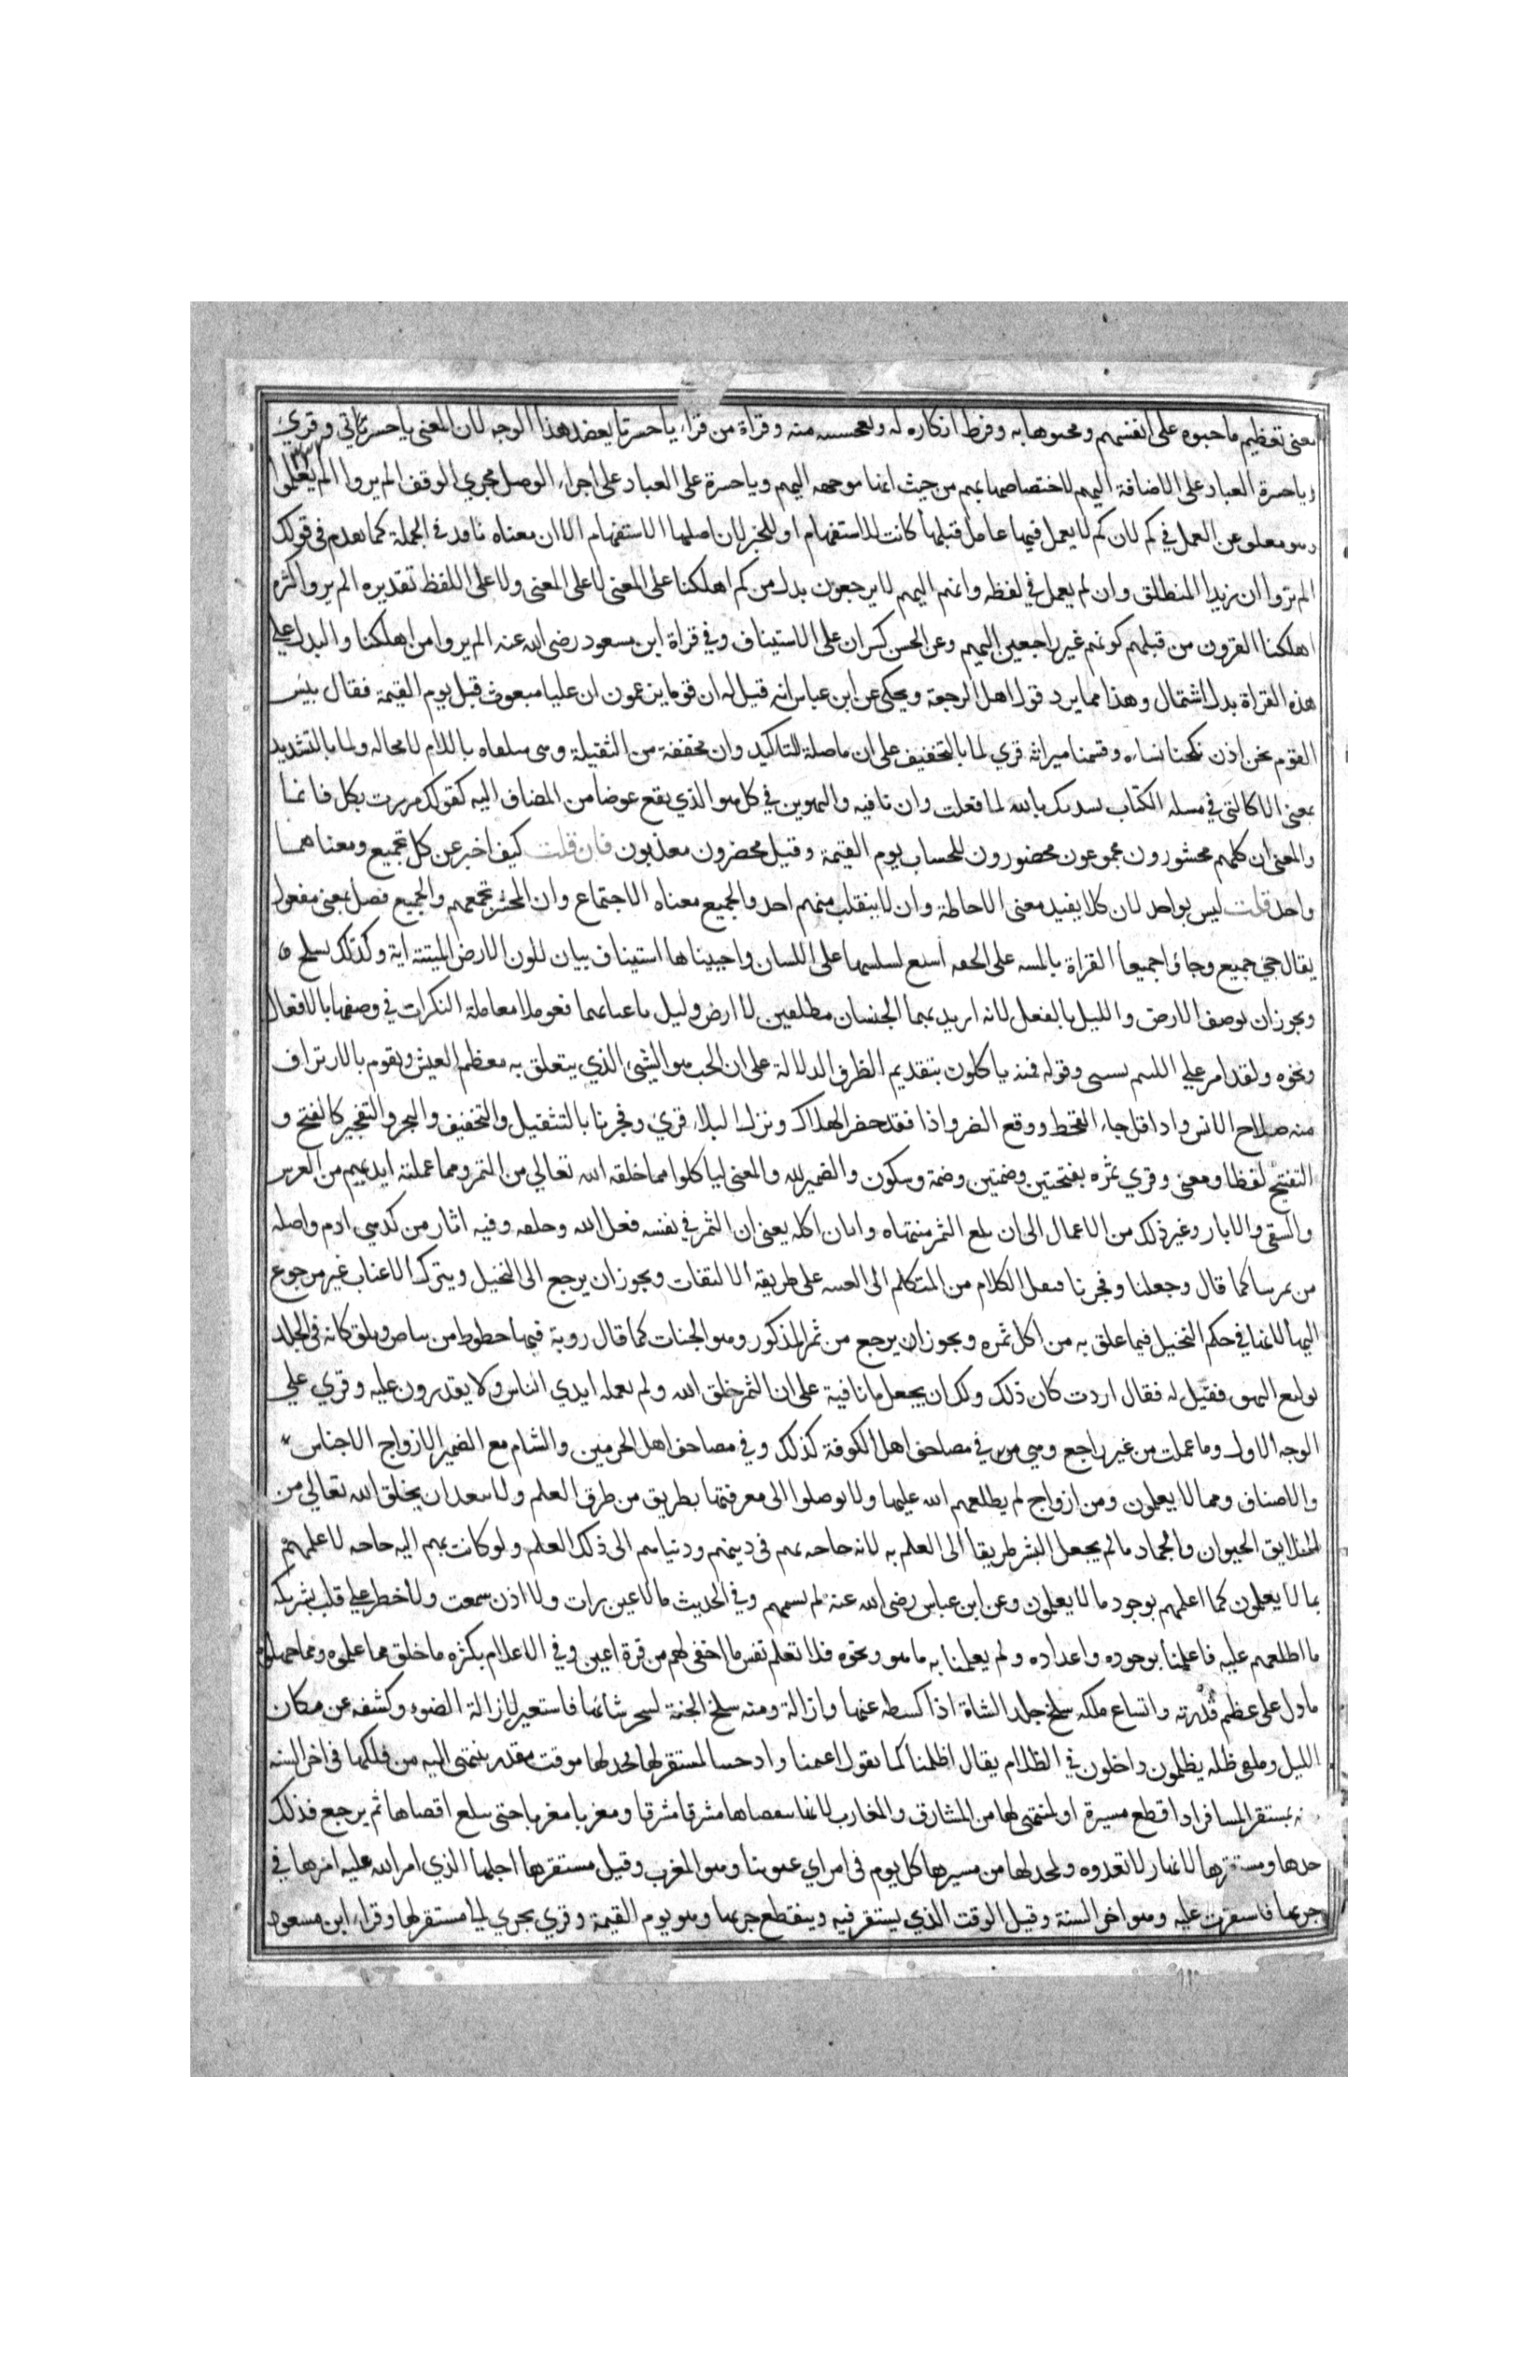 معنى تعظيم ماجنوه على انفسهم ومحنوها به وفرط انكاره له وتعجيبه منه وقراة من قراء ياحسرتا يعضد هذا الوجه لان المعنى ياحسرتي وقري
ياحسرة العباد على الاضافة اليهم لاختصاصها بهم من حيث انها موجهه اليهم وياحسرة على العباد على اجراء الوصل مجري الوقف الم يروا الم يعلموا
وهو معلق عن العمل في كم لان كم لا يعمل فيها عامل قبلها كانت للاستفهام او للخبر لان اصلها الاستفهام الا ان معناه نافذ في الجملة كما نفذ في قولك
الم يروا ان زيدا لمنطلق وان لم يعمل في لفظه وانهم اليهم لا يرجعون بدل من كم اهلكنا على المعنى لا على المعنى ولا على اللفظ تقديره الم يروا كثرة
اهلكنا القرون من قبلهم كونهم غير راجعين اليهم وعن الحسن كسر ان على الاستيناف وفي قراة ابن مسعود رضى الله عنه الم يروا من اهلكنا والبدل على
هذه القراة بدل اشتمال وهذا مما يرد قول اهل الرجعة ويحكى عن ابن عباس انه قيل له ان قوما يزعمون ان عليا مبعوث قبل يوم القيمة فقال بئس
القوم نحن اذن نكحنا نساءه وقسمنا ميراثه قري لما بالتخفيف على ان ما صلة للتاكيد وان مخففة من الثقيلة وهى متلقاه باللام لا محاله ولما بالتشديد
بمعنى الا كالتى في مسله الكتاب نشدتك بالله لما فعلت وان نافيه والتنوين في كل هو الذي يقع عوضا من المضاف اليه كقولك مررت بكل قائما
والمعنى ان كلهم محشورون مجموعون محضورون للحساب يوم القيمة وقيل محضرون معذبون فان قلت كيف اخبر عن كل بجميع ومعناهما
واحد قلت ليس بواحد لان كلا يفيد معنى الاحاطة وان لا ينفلت منهم احد والجميع معناه الاجتماع وان المحشر يجمعهم والجميع فعيل بمعنى مفعول
يقال حي جميع وجاؤا جميعا القراة بالميته على الخفه اشيع لسلسها على اللسان واحييناها استيناف بيان لكون الارض الميتة اية وكذلك نسلخ
ويجوز ان توصف الارض والليل بالفعل لانه اريد بهما الجنسان مطلقين لا ارض وليل باعيانهما فعوملا معاملة النكرات في وصفها بالافعال
ونحوه ولقد امر على اللئيم يسبني وقوله فمنه ياكلون بتقديم الظرف الدلالة على ان الحب هو الشيئ الذي يتعلق به معظم العيش ويقوم بالارتزاق
منه صلاح الانس واذا قل جاء القحط ووقع الضر واذا فقد حضر الهلاك ونزل البلاء قرئ وفجرنا بالتثقيل والتخفيف والفجر والتفجير كالفتح و
التفتيح لفظا ومعنى وقري ثمره بفتحتين وضمتين وضمة وسكون والضمير لله والمعنى لياكلوا مما خلقه الله تعالي من الثمر ومما عملته ايديهم من الغرس
والسقى والابار وغير ذلك من الاعمال الى ان بلغ الثمر منتهاه وابان اكله يعنى ان الثمر في نفسه فعل الله وخلقه وفيه اثار من كد بني ادم واصله
من ثمرنا كما قال وجعلنا وفجرنا فنقل الكلام من المتكلم الى الغيبة على طريقة الالتفات ويجوز ان يرجع الى النخيل ويترك الاعناب غير مرجوع
اليها لانها في حكم النخيل فيما علق به من اكل ثمره ويجوز ان يرجع من ثمر المذكور وهو الجنات كما قال روبة فيها خطوط من بياض وبلق كانه في الجلد
توليع البهق فقيل له فقال اردت كان ذلك ولك ان يجعل ما نافية على ان الثمر خلق الله ولم يعمله ايدي الناس ولا يقدرون عليه وقري على
الوجه الاول وما عملت من غير راجع وهي في مصاحف اهل الكوفة كذلك وفي مصاحف اهل الحرمين والشام مع الضمير الازواج الاجناس
والاصناف ومما لا يعلمون ومن ازواج لم يطلعهم الله عليها ولا توصلوا الى معرفتها بطريق من طرق العلم ولا يبعد ان يخلق الله تعالي من
الخلايق الحيوان والجماد ما لم يجعل البشر طريقا الى العلم به لانه لا حاجه بهم في دينهم ودنياهم الى ذلك العلم ولو كانت بهم اليه حاجه لاعلمهم
بما لا يعلمون كما اعلمهم بوجود ما لا يعلمون وعن ابن عباس رضى الله عنه لم يسمهم وفي الحديث ما لا عين رات ولا اذن سمعت ولا خطر على قلب بشر بله
ما اطلعهم عليه فاعلمنا بوجوده واعداده ولم يعلمنا به ما هو ونحوه فلا تعلم نفس ما اخفى لهم من قرة اعين وفي الاعلام بكثره ما خلق مما علموه ومما جهلوه
ما دل على عظم قدرته واتساع ملكه سلخ جلد الشاة اذا كسطه عنها وازالة ومنه سلخ الحية لخرشائها فاستعير لازالة الضوء وكشفه عن مكان
الليل وملقى ظله يظلمون داخلون في الظلام يقال اظلمنا كما تقول اعتمنا وادجينا لمستقر لها لحد لها موقت مقدر ينتهى اليه من فلكها في اخر السنه
بمستقر المسافر اذا قطع مسيرة او لمنتهى لها من المشارق والمغارب لانها تتقصاها مشرقا مشرقا ومغربا مغربا حتى تبلغ اقصاها ثم يرجع فذلك
حدها ومستقرها لانها لا تعدوه ولحد لها من مسيرها كل يوم في امراي عيوننا وهو المغرب وقيل مستقرها اجلها الذي امر الله عليه امرها في
جريها فاستقرت عليه وهو اخر السنة وقيل الوقت الذي يستقر فيه وينقطع جريها وهو يوم القيمة وقري يجري الى مستقر لها وقراء ابن مسعود